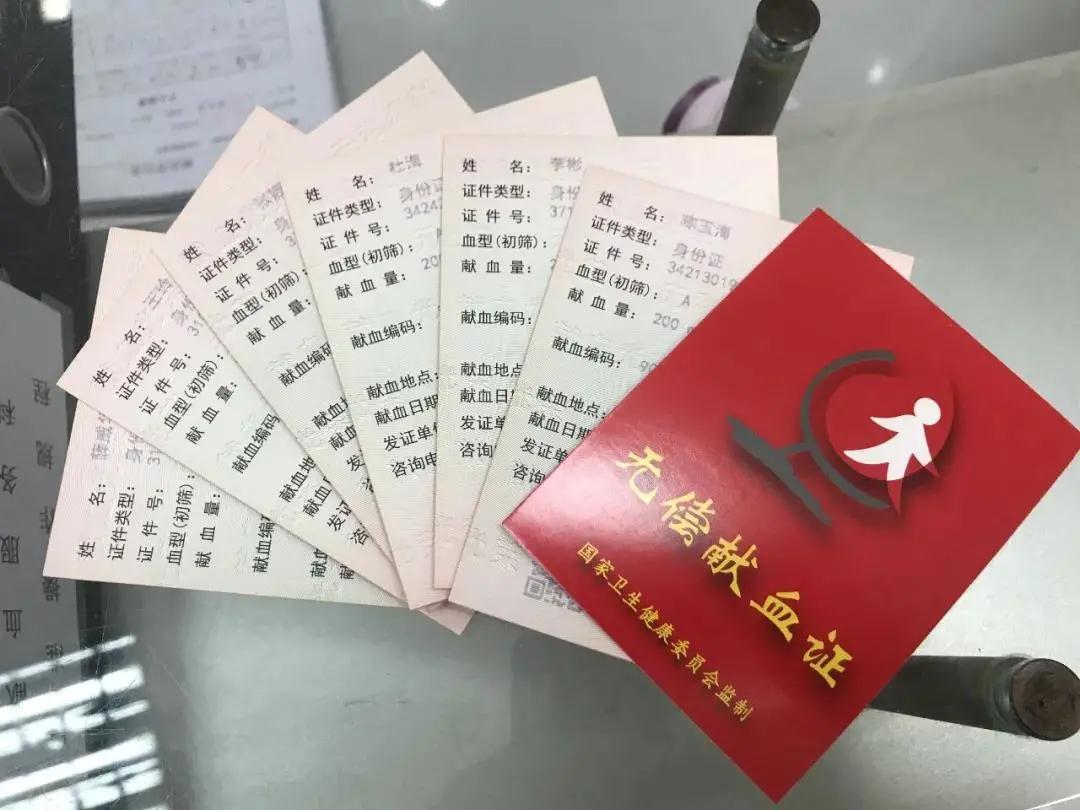 姓 名：
证件类型：身份
证 件 号：31
血型(初筛)：
献 血 量：
献血编码
献血地
姓 名：
证件类型：身份
证 件 号：31
血型(初筛)：
献 血 量：
献血编码
献血地
献血日
发证
姓 名：
证件类型：身
证 件 号：3
血型(初筛)：
献 血 量：
献血编码：
献血地
献血日
发证单
咨
姓 名：杜海
证件类型：身份证
证 件 号：34242
血型(初筛)：A
献 血 量：200
献血编码：
献血地点
献血日期
发证单位
咨询电
姓 名：李彬
证件类型：身份
证 件 号：371
血型(初筛)：
献 血 量：2
献血编码：
献血地点
献血日期
发证单
咨询
姓 名：玉海
证件类型：身份证
证 件 号：34213019
血型(初筛)：A
献 血 量：200
献血编码：90
献血地点：
献血日期
发证单位
咨询电
无偿献血证
国家卫生健康委员会监制
献 血 服 务 科
操 作 规 程